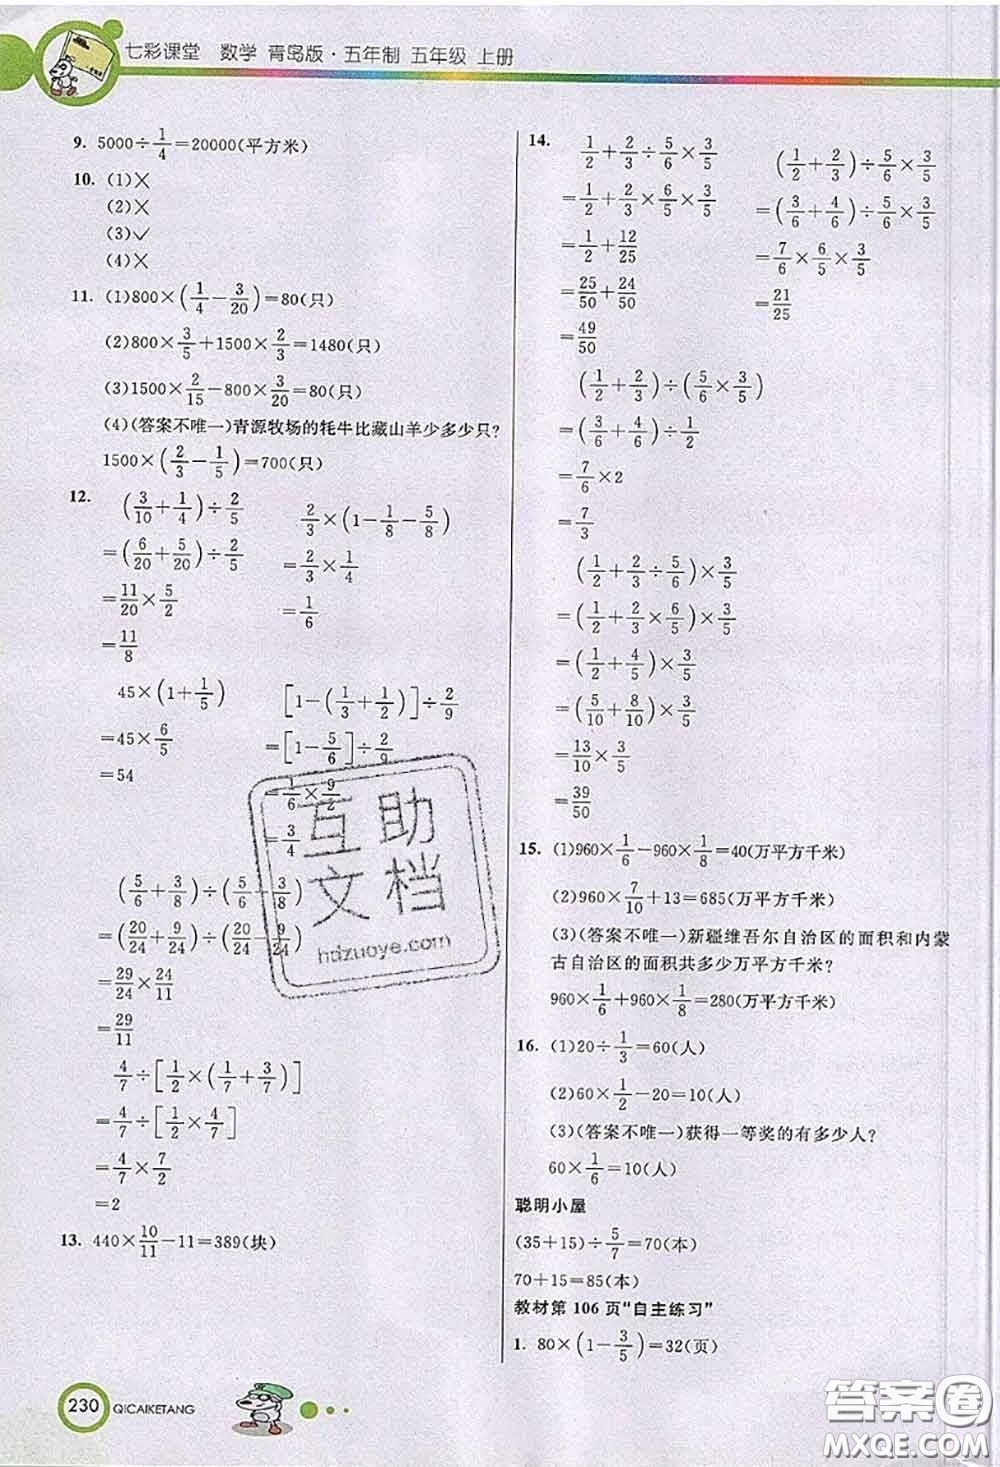 七彩课堂 数学 青岛版·五年制 五年级 上册
9. 5000÷1/4=20000(平方米)
10. (1)×
(2)×
(3)✓
(4)×
11. (1)800×(1/4-3/20)=80(只)
(2)800×3/5+1500×2/3=1480(只)
(3)1500×2/15-800×3/20=80(只)
(4)(答案不唯一)青源牧场的牦牛比藏山羊少多少只?
1500×(2/3-1/5)=700(只)
12. (3/10+1/4)÷2/5
=(6/20+5/20)÷2/5
=11/20×5/2
=11/8
2/3×(1-1/8-5/8)
=2/3×1/4
=1/6
45×(1+1/5)
=45×6/5
=54
[1-(1/3+1/2)]÷2/9
=[1-5/6]÷2/9
=1/6×9/2
=3/4
(5/6+3/8)÷(5/6-3/8)
=(20/24+9/24)÷(20/24-9/24)
=29/24×24/11
=29/11
4/7÷[1/2×(1/7+3/7)]
=4/7÷[1/2×4/7]
=4/7×7/2
=2
13. 440×10/11-11=389(块)
14. 1/2+2/3÷5/6×3/5
=1/2+2/3×6/5×3/5
=1/2+12/25
=25/50+24/50
=49/50
(1/2+2/3)÷5/6×3/5
=(3/6+4/6)÷5/6×3/5
=7/6×6/5×3/5
=21/25
(1/2+2/3)÷(5/6×3/5)
=(3/6+4/6)÷1/2
=7/6×2
=7/3
(1/2+2/3÷5/6)×3/5
=(1/2+2/3×6/5)×3/5
=(1/2+4/5)×3/5
=(5/10+8/10)×3/5
=13/10×3/5
=39/50
15. (1)960×1/6-960×1/8=40(万平方千米)
(2)960×7/10+13=685(万平方千米)
(3)(答案不唯一)新疆维吾尔自治区的面积和内蒙
古自治区的面积共多少万平方千米?
960×1/6+960×1/8=280(万平方千米)
16. (1)20÷1/3=60(人)
(2)60×1/2-20=10(人)
(3)(答案不唯一)获得一等奖的有多少人?
60×1/6=10(人)
聪明小屋
(35+15)÷5/7=70(本)
70+15=85(本)
教材第 106 页“自主练习”
1. 80×(1-3/5)=32(页)
互助
文档
hdzuoye.com
230 QICAIKETANG
答案圈
MXQE.COM